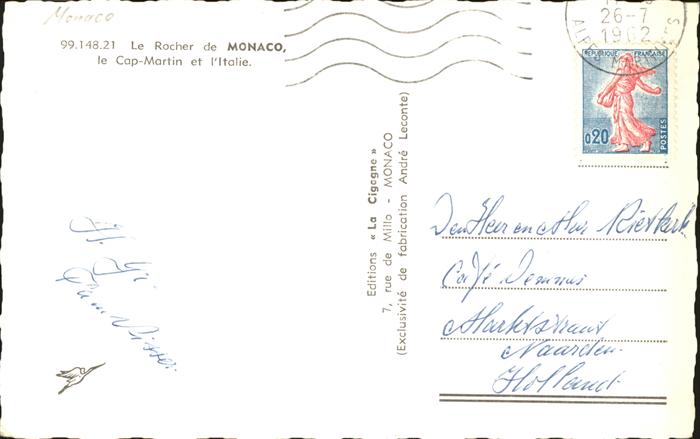 Monaco
99.148.21 Le Rocher de MONACO,
le Cap-Martin et l'Italie.
26-7
1962
ALPES MARITIMES
REPUBLIQUE FRANÇAISE
0,20
POSTES
Editions « La Cigogne »
7, rue de Millo - MONACO
(Exclusivité de fabrication André Leconte)
Den Heer en Mer Rietkerk
Café Demmus
Marktstraat
Naarden
Holland